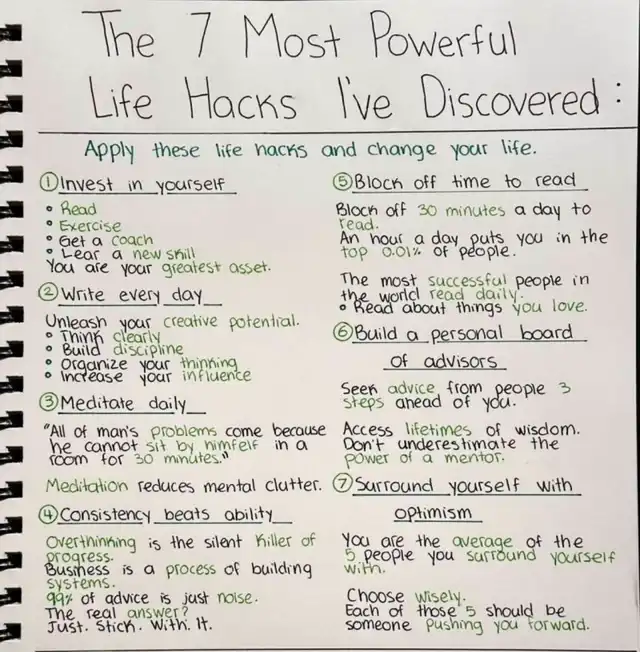 The 7 Most Powerful
Life Hacks I've Discovered:
Apply these life hacks and change your life.
① Invest in yourself
• Read
• Exercise
• Get a coach
• Lear a new skill
You are your greatest asset.
② Write every day
Unleash your creative potential.
• Think clearly
• Build discipline
• Organize your thinking
• Increase your influence
③ Meditate daily
"All of man's problems come because
he cannot sit by himfelf in a
room for 30 minutes."
Meditation reduces mental clutter.
④ Consistency beats ability
Overthinking is the silent killer of
progress.
Business is a process of building
systems.
99% of advice is just noise.
The real answer?
Just. Stick. With. It.
⑤ Block off time to read
Block off 30 minutes a day to
read.
An hour a day puts you in the
top 0.01% of people.
The most successful people in
the world read daily.
• Read about things you love.
⑥ Build a personal board
of advisors
Seek advice from people 3
steps ahead of you.
Access lifetimes of wisdom.
Don't underestimate the
power of a mentor.
⑦ Surround yourself with
optimism
You are the average of the
5 people you surround yourself
with.
Choose wisely.
Each of those 5 should be
someone pushing you forward.